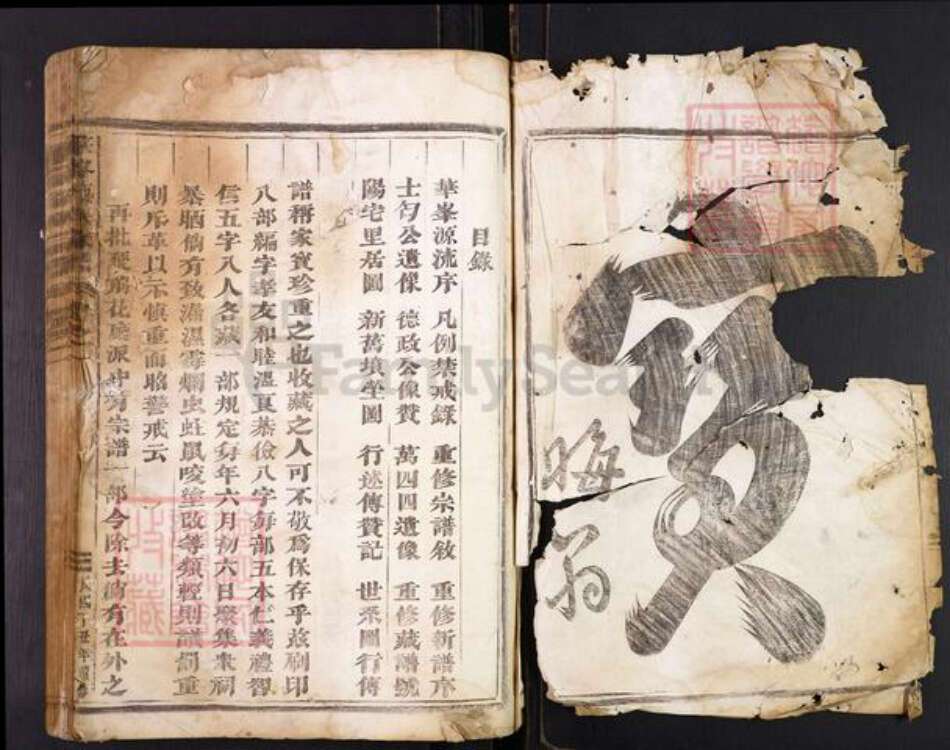 寶
晦翁
目錄
華峯源流序 凡例禁戒錄 重修宗譜敘 重修新譜序
士匀公遺像 德政公像贊 萬四四遺像 重修藏譜號
陽宅里居圖 新萬墳坐圖 行述傳贊記 世系圖行傳
譜稱家寳珍重之也收藏之人可不敬爲保存乎兹刷印
八部編字孝友和睦溫良恭儉八字每部五本仁義禮智
信五字八人各藏一部規定每年六月初六日聚集來祠
暴晒倘有致漏濕霉爛虫蛀鼠咬塗改等類輕則議罰重
則斥革以示慎重而昭警戒云
再批 花廳派 有宗譜一部今除去倘有在外之
FamilySearch